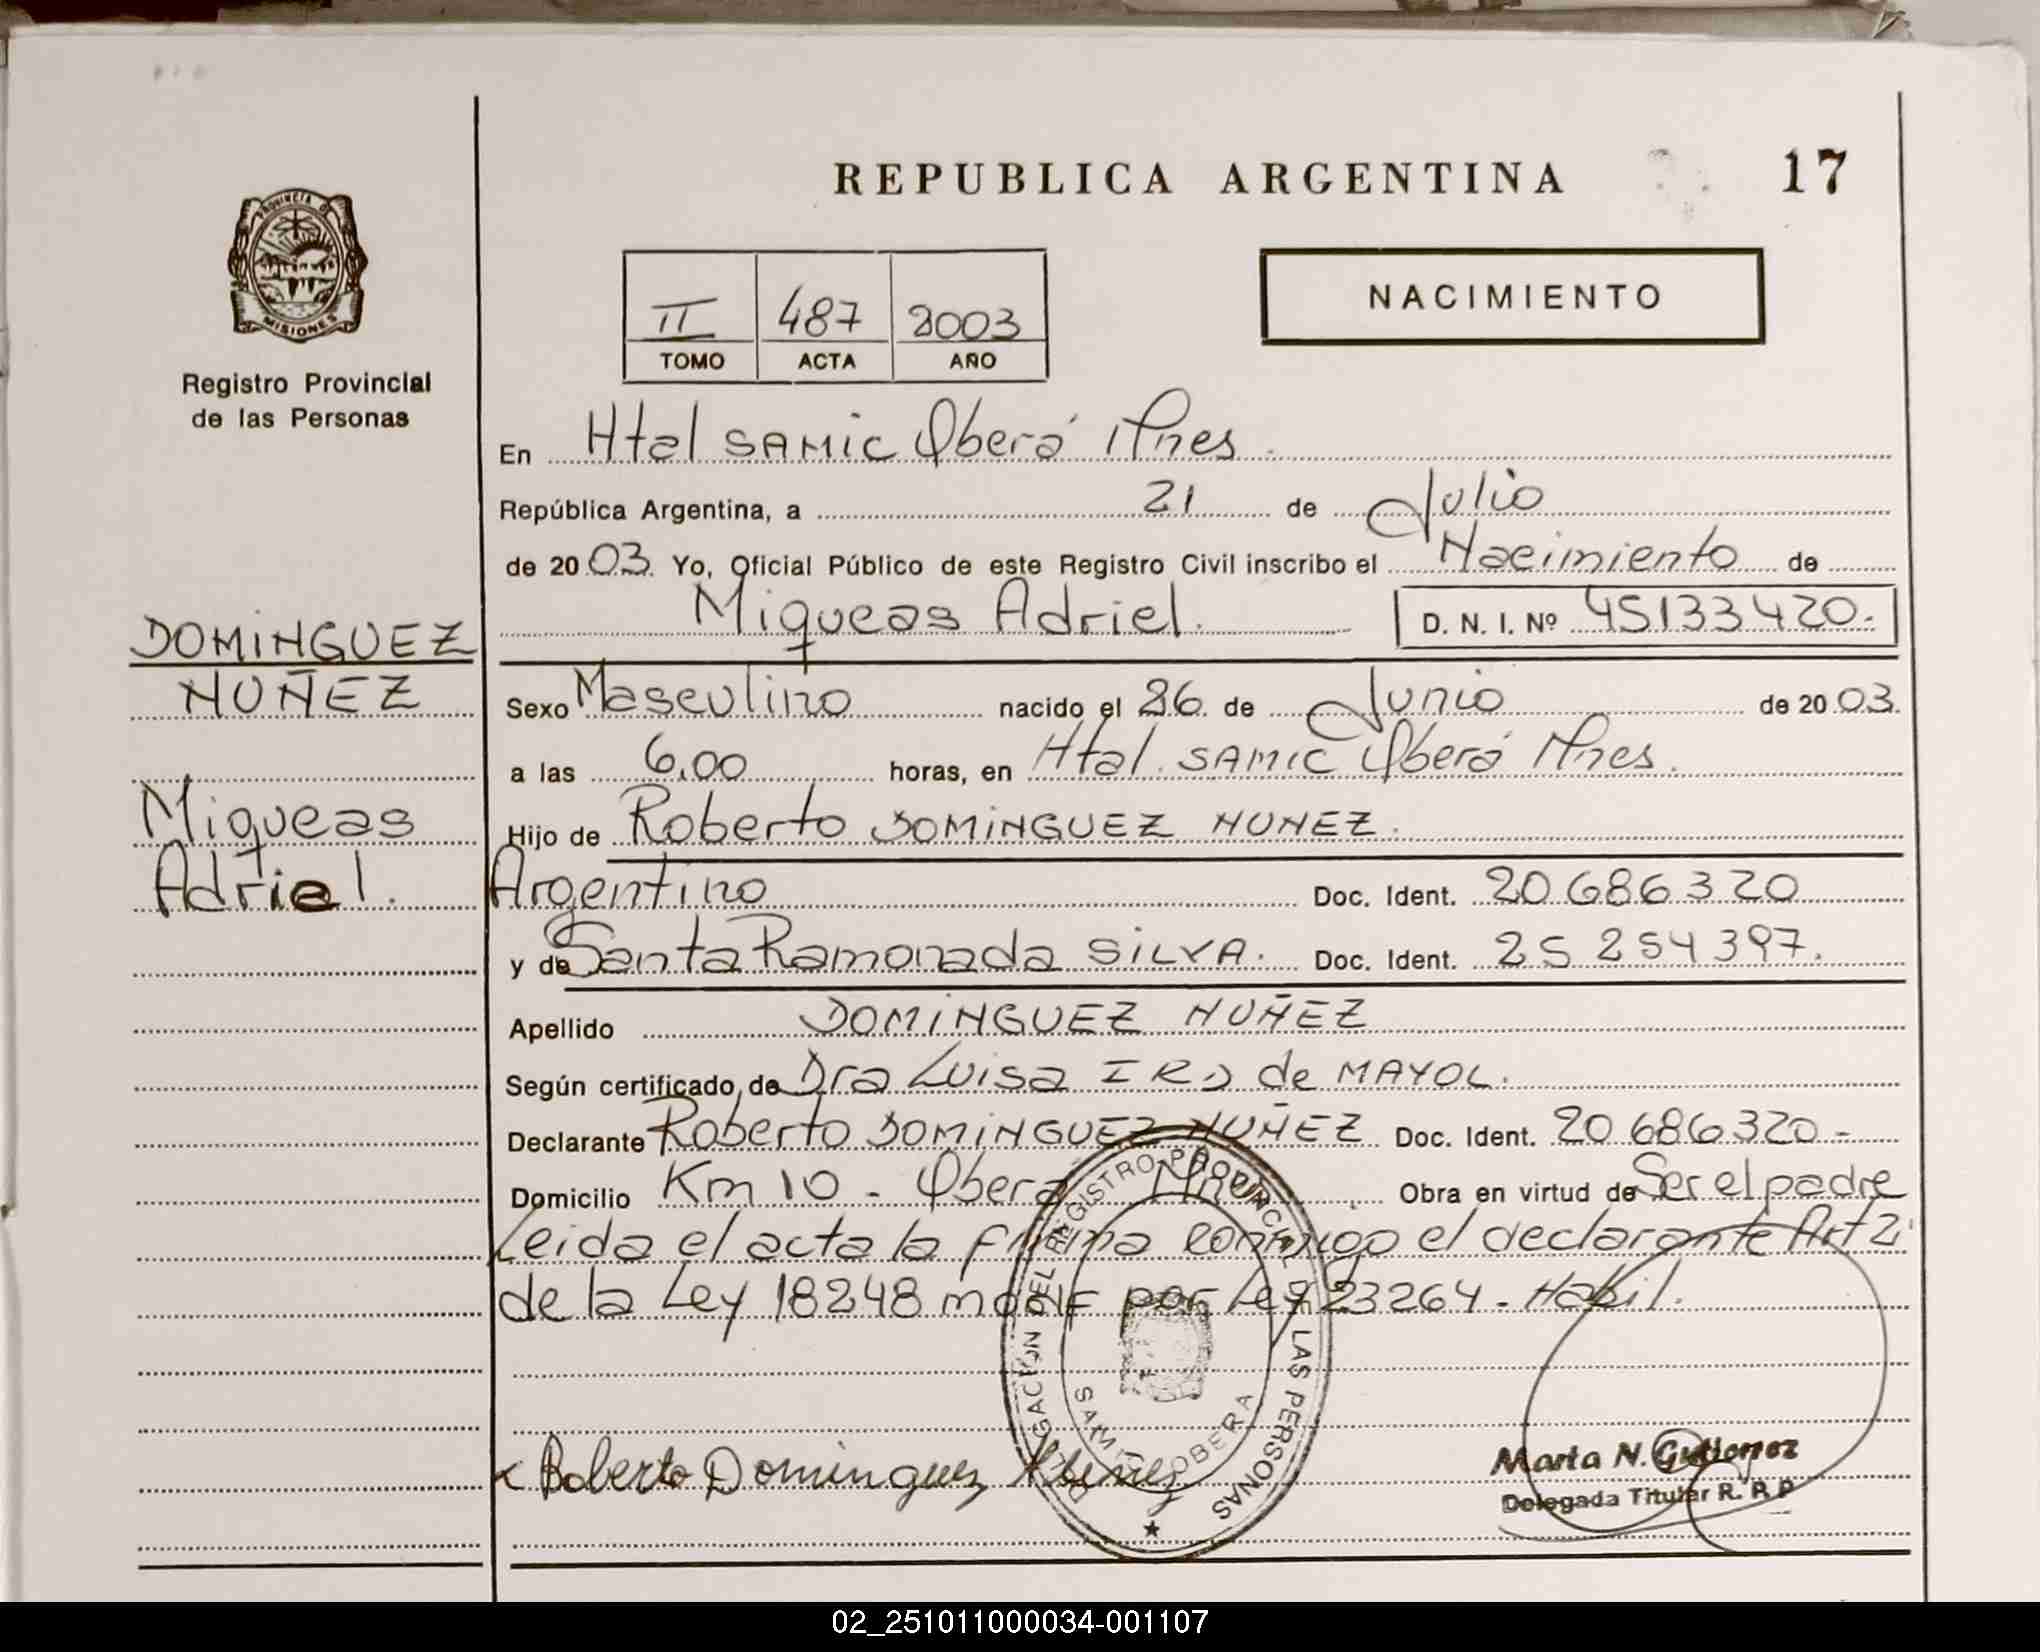 REPUBLICA ARGENTINA 17
PROVINCIA DE
MISIONES
Registro Provincial
de las Personas
NACIMIENTO
II 487 2003
TOMO ACTA AÑO
En Htal SAMIC Oberá Mnes.
República Argentina, a 21 de Julio
de 2003. Yo, Oficial Público de este Registro Civil inscribo el Nacimiento de
Miqueas Adriel. D. N. I. Nº 45133420.-
DOMINGUEZ
NUÑEZ
Miqueas
Adriel.
Sexo Masculino nacido el 26 de Junio de 2003.
a las 6,00 horas, en Htal. SAMIC Oberá Mnes.
Hijo de Roberto DOMINGUEZ NUNEZ.
Argentino Doc. Ident. 20.686.320
y de Santa Ramonada SILVA. Doc. Ident. 25 254 397.
Apellido DOMINGUEZ NUÑEZ
Según certificado de Dra Luisa de MAYOL.
Declarante Roberto DOMINGUEZ NUÑEZ Doc. Ident. 20 686 320-
Domicilio Km 10 - Oberá Mnes. Obra en virtud de Ser el padre
Leida el acta la firma conmigo el declarante Art 2.
de la Ley 18248 modif por Ley 23264. Habil.
DELEGACION DEL REGISTRO PROVINCIAL DE LAS PERSONAS
SAMIC OBERA
Roberto Dominguez
Marta N. Gutierrez
Delegada Titular R. P. P.
02_251011000034-001107